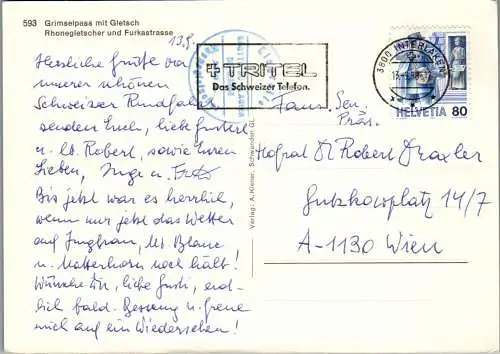 593 Grimselpass mit Gletsch
Rhonegletscher und Furkastrasse
13.9.
Herzliche Grüße von
unserer schönen
Schweizer Rundfahrt
senden Euch, liebe
u. lb. Robert, sowie Euren
Lieben, Inge u. Fritz
Bis jetzt war es herrlich,
wenn nur jetzt das Wetter
auf Jungfrau, Mt. Blanc
u. Matterhorn noch hält!
Wünsche Dir, liebe Gusti, end-
lich bald. Besserung u. freue
mich auf ein Wiedersehen!
TRITEL
Das Schweizer Telefon.
3800 INTERLAKEN
HELVETIA 80
Verlag: A. Klener,
Fam. Sen.
Präs.
Hofrat Dr Robert Draxler
Gutzkowplatz 14/7
A-1130 Wien